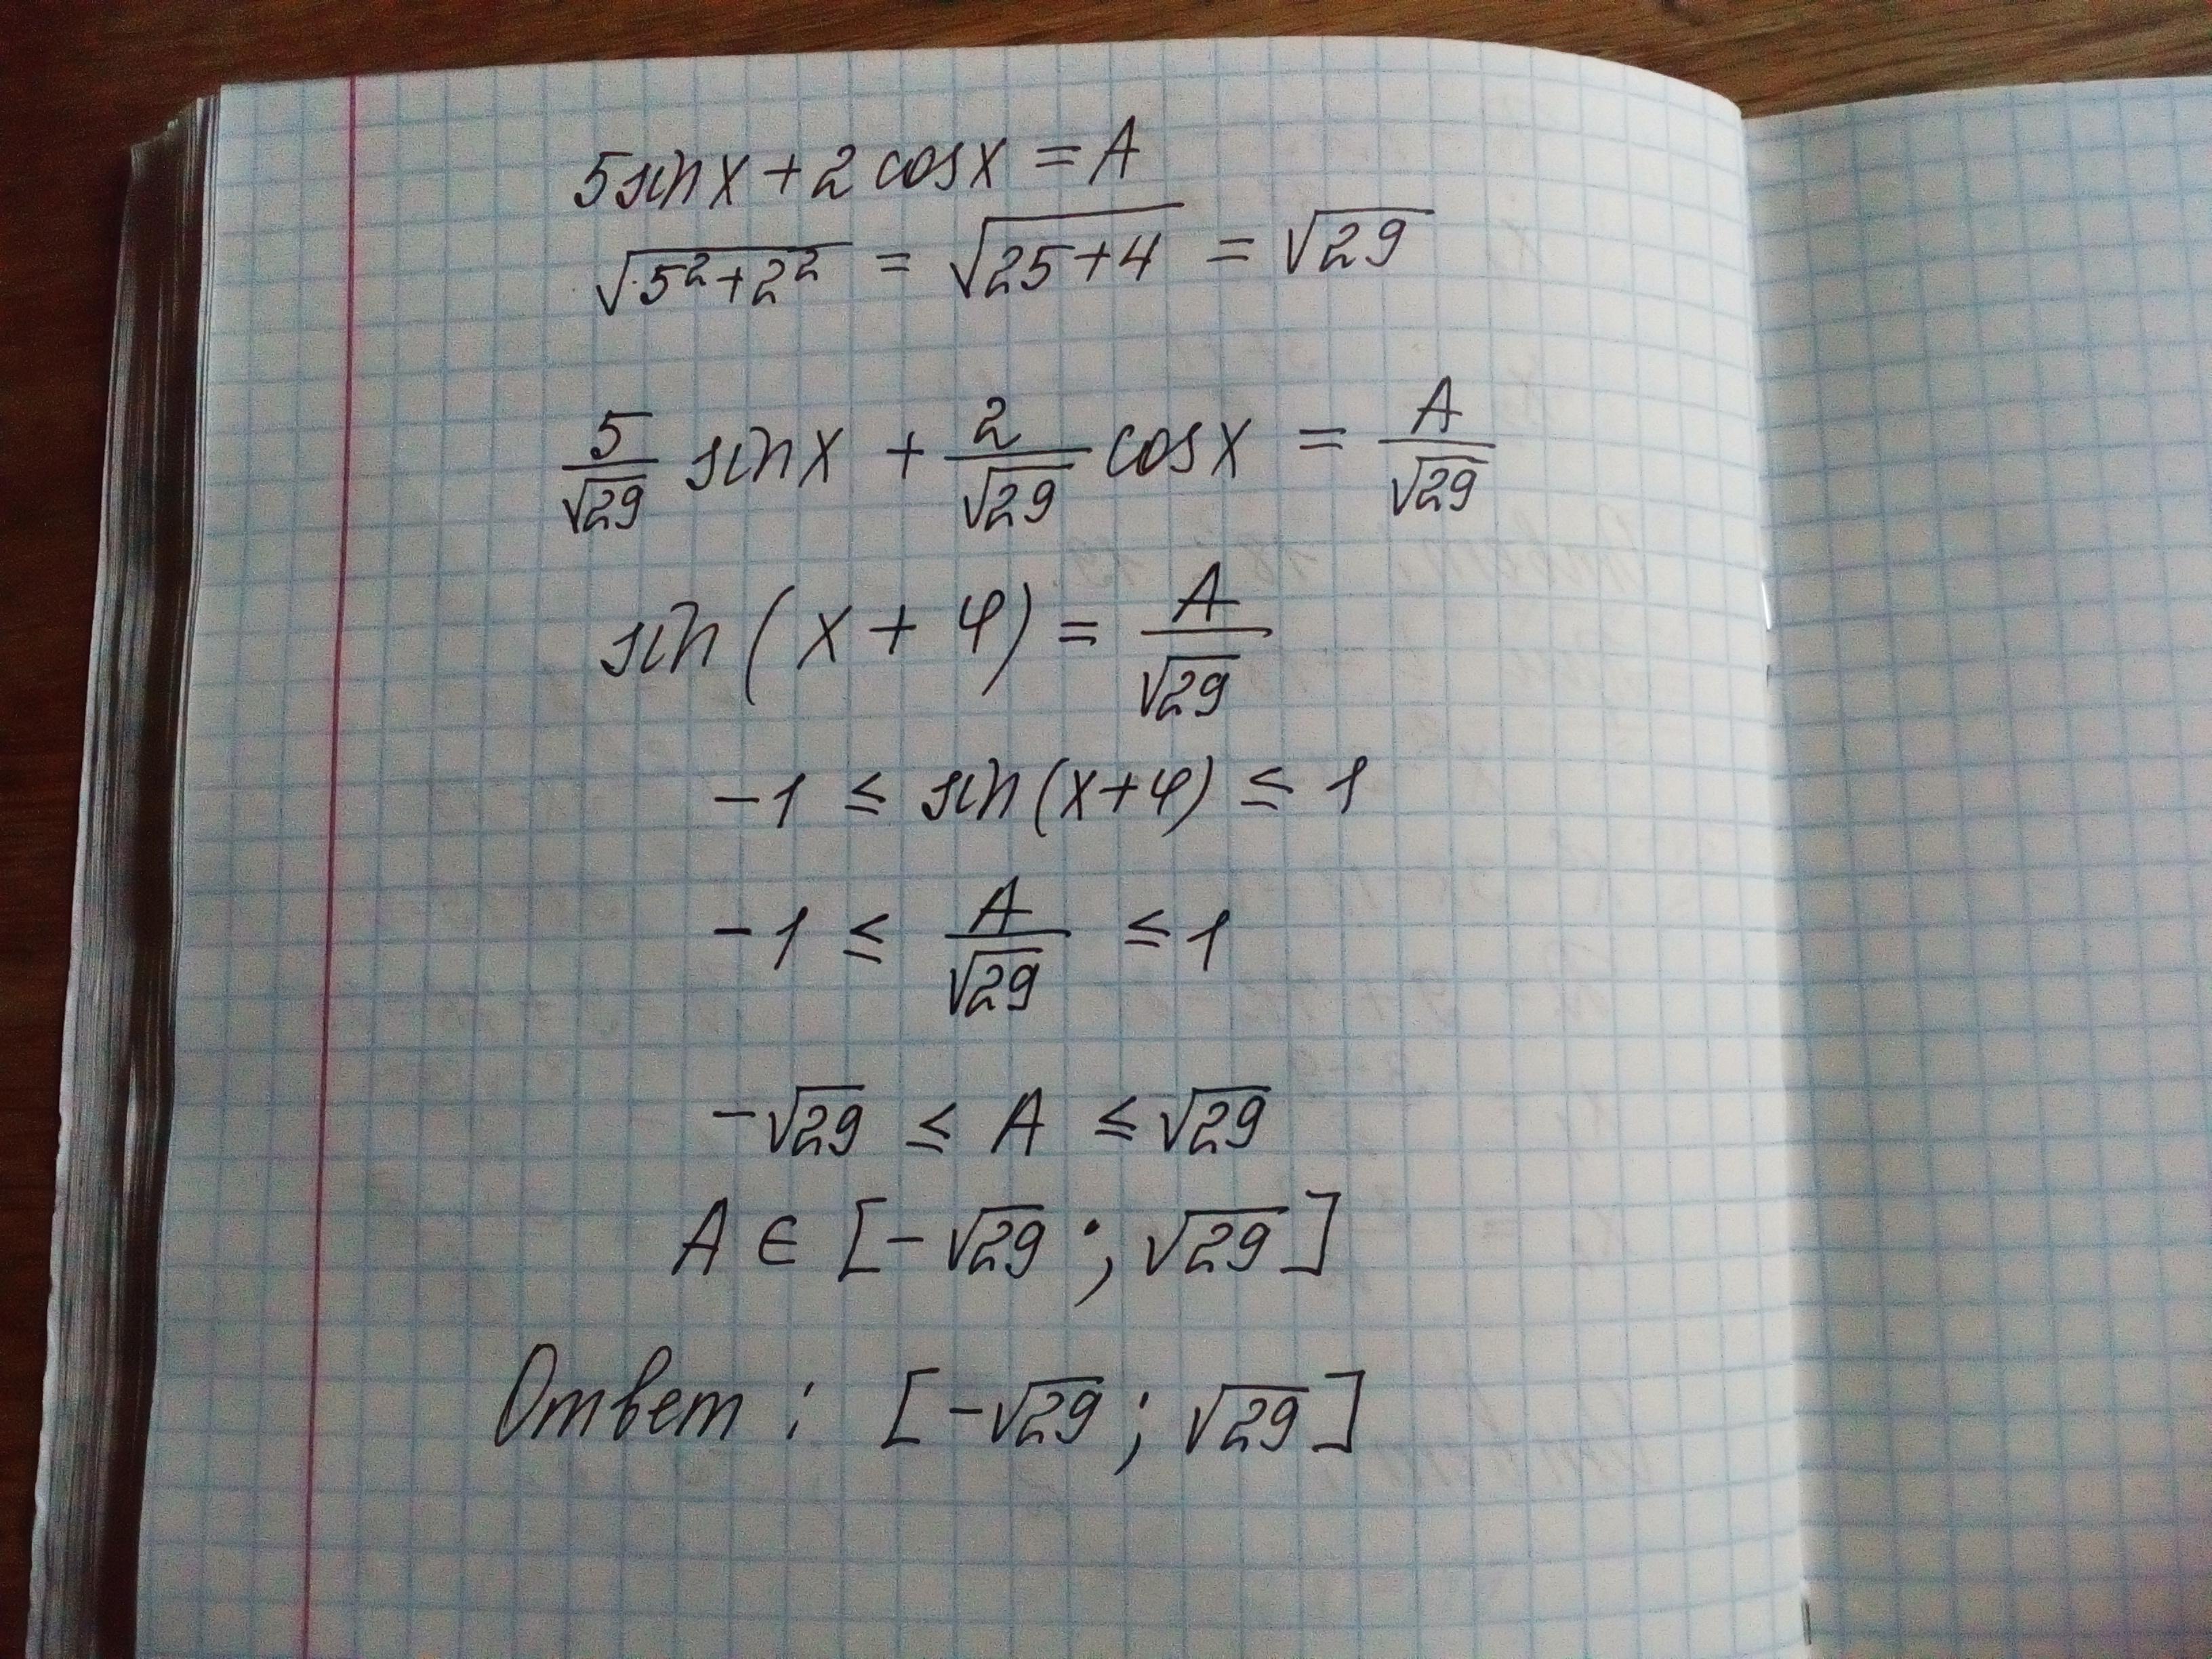 5sinx + 2cosx = A
√5²+2² = √25+4 = √29
5/√29 sinx + 2/√29 cosx = A/√29
sin(x + φ) = A/√29
-1 ≤ sin(x+φ) ≤ 1
-1 ≤ A/√29 ≤ 1
-√29 ≤ A ≤ √29
A ∈ [-√29 ; √29]
Ответ : [-√29 ; √29]